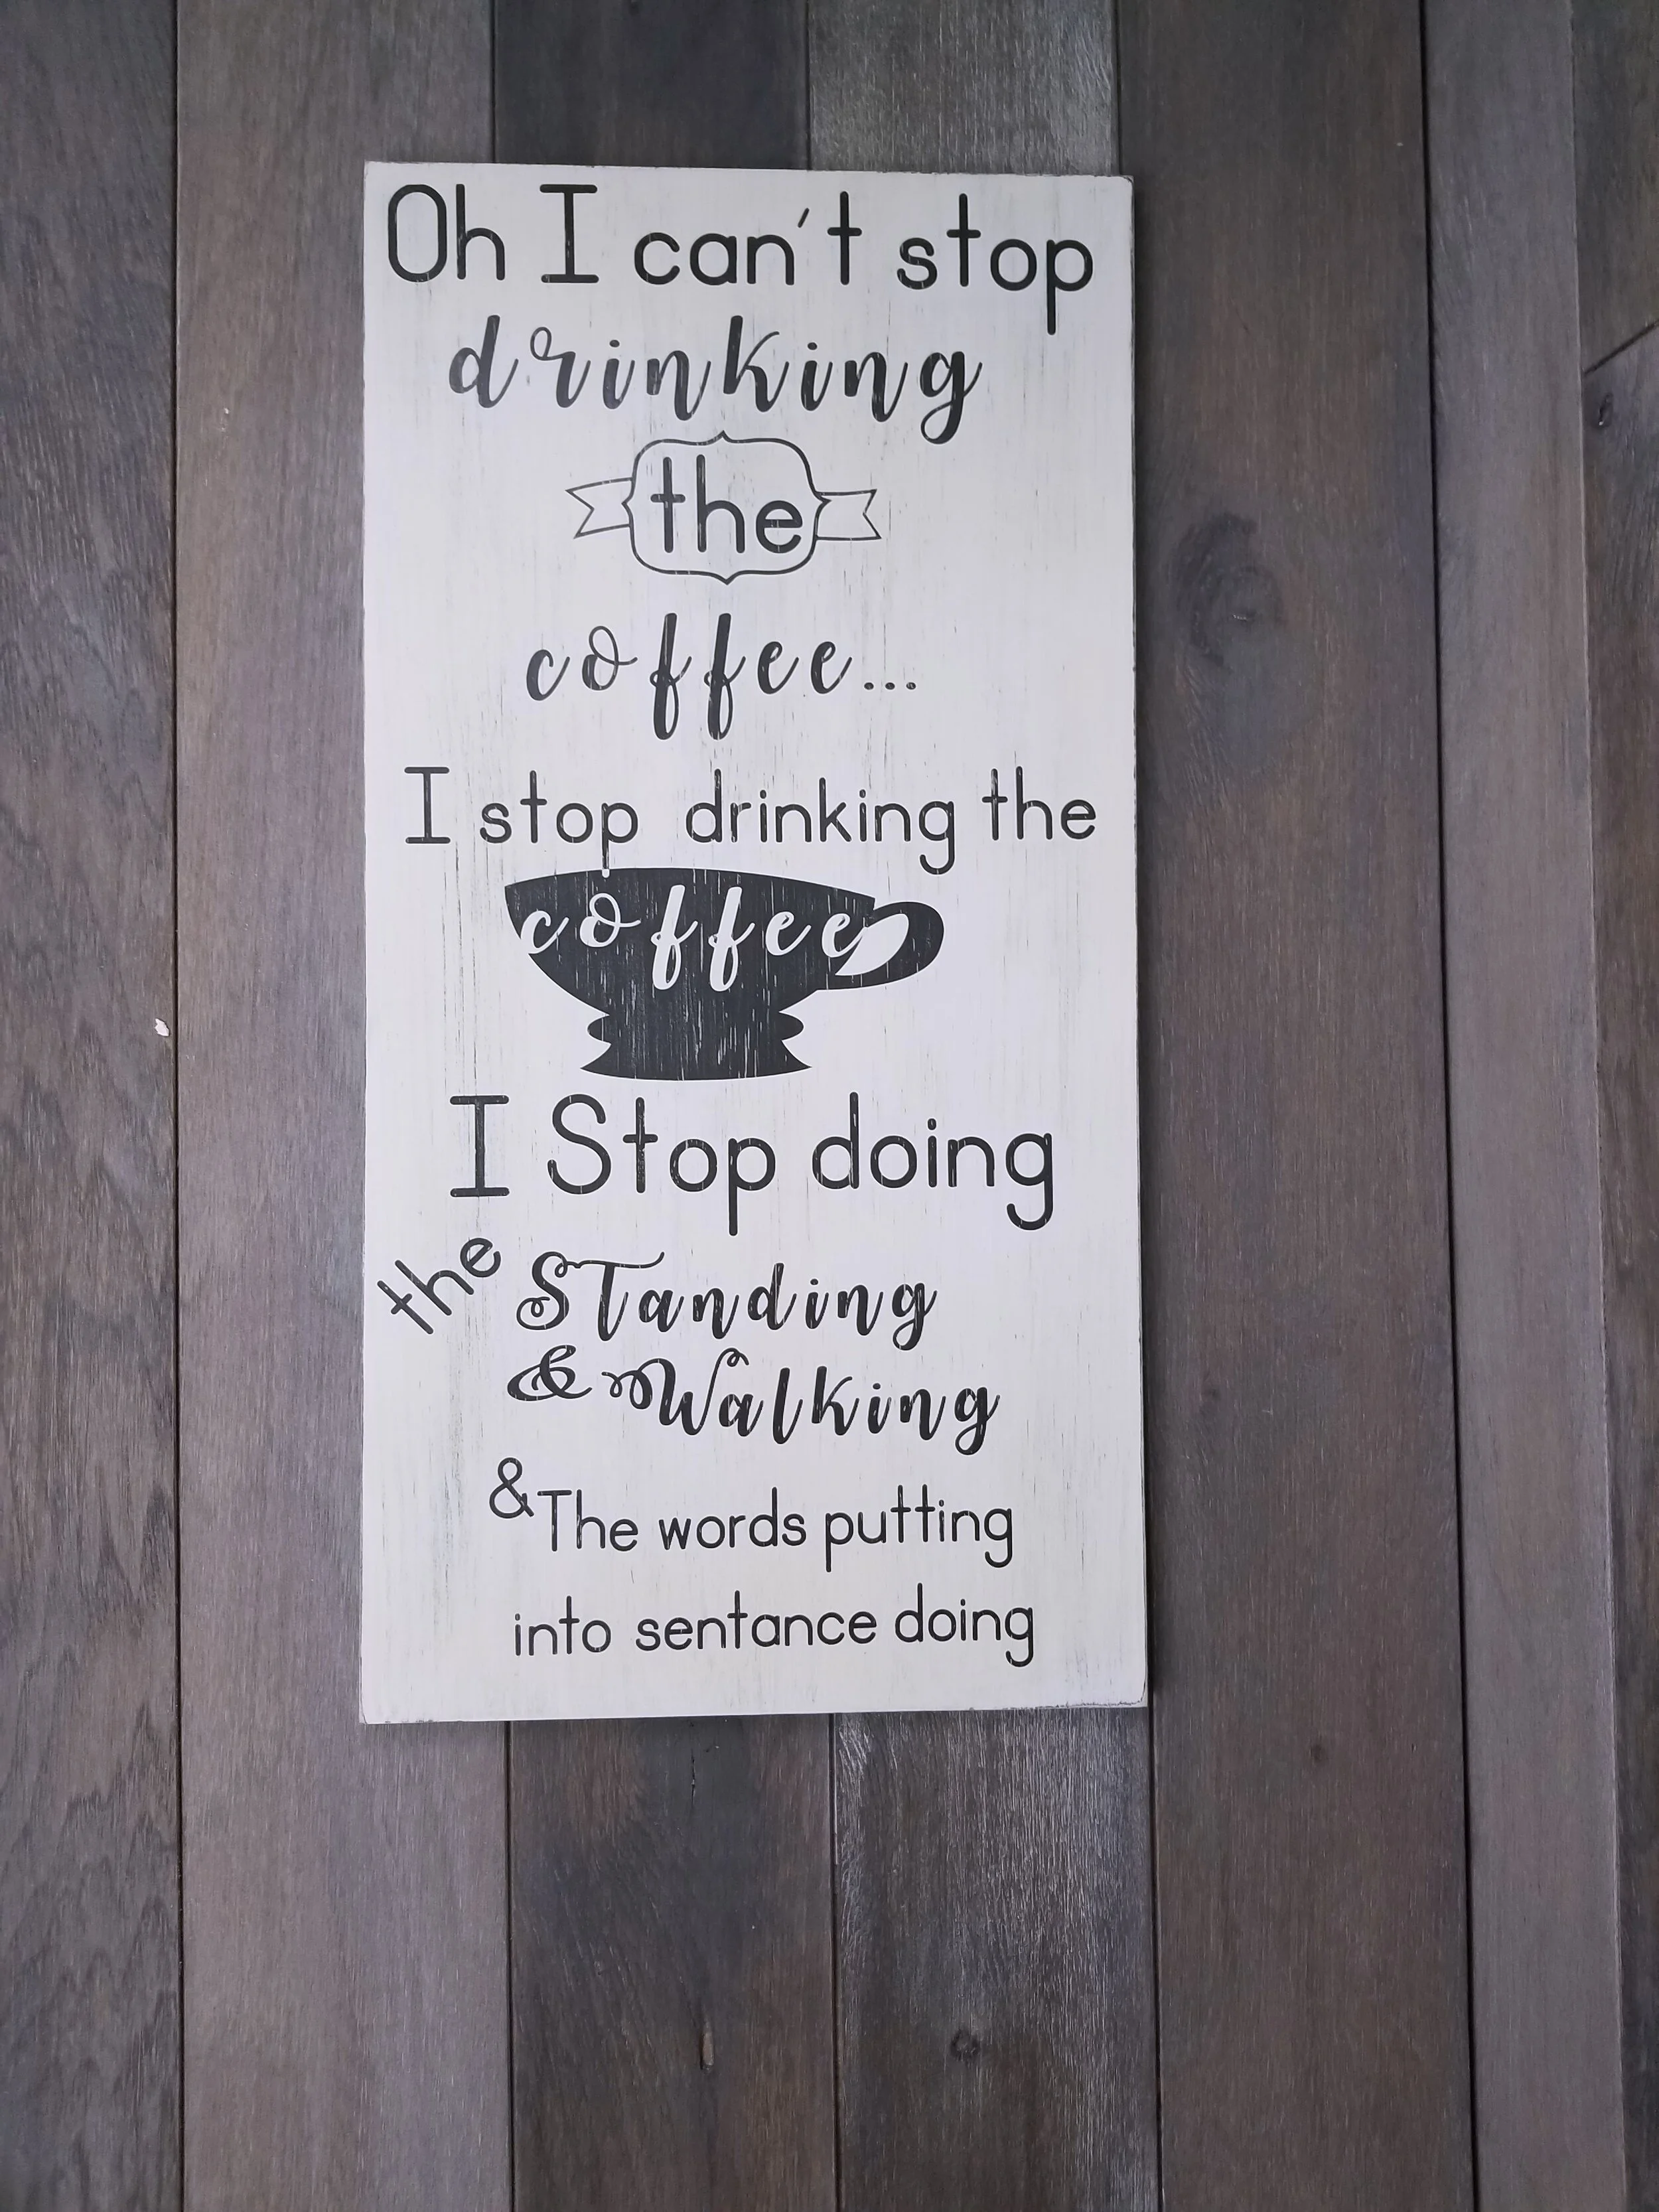 Oh I can't stop
drinking
the
coffee...
I stop drinking the
coffee
I Stop doing
the STanding
& Walking
& The words putting
into sentance doing